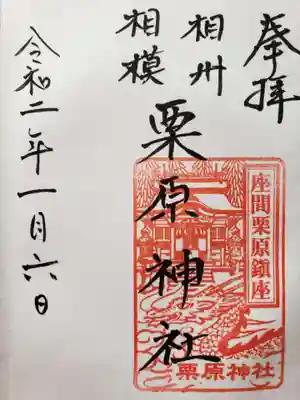 奉拝
相州
相模
栗原神社
座間栗原鎮座
栗原神社
令和二年一月六日